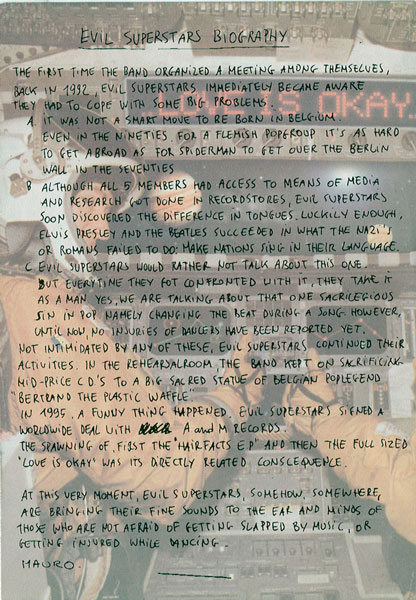 EVIL SUPERSTARS BIOGRAPHY
THE FIRST TIME THE BAND ORGANIZED A MEETING AMONG THEMSELVES,
BACK IN 1992, EVIL SUPERSTARS IMMEDIATELY BECAME AWARE
THEY HAD TO COPE WITH SOME BIG PROBLEMS.
IS OKAY.
A IT WAS NOT A SMART MOVE TO BE BORN IN BELGIUM.
EVEN IN THE NINETIES. FOR A FLEMISH POPGROUP IT'S AS HARD
TO GET ABROAD AS FOR SPIDERMAN TO GET OVER THE BERLIN
WALL IN THE SEVENTIES
B ALTHOUGH ALL 5 MEMBERS HAD ACCESS TO MEANS OF MEDIA
AND RESEARCH GOT DONE IN RECORDSTORES, EVIL SUPERSTARS
SOON DISCOVERED THE DIFFERENCE IN TONGUES. LUCKILY ENOUGH,
ELVIS PRESLEY AND THE BEATLES SUCCEEDED IN WHAT THE NAZI'S
OR ROMANS FAILED TO DO: MAKE NATIONS SING IN THEIR LANGUAGE.
C EVIL SUPERSTARS WOULD RATHER NOT TALK ABOUT THIS ONE.
BUT EVERYTIME THEY GOT CONFRONTED WITH IT, THEY TAKE IT
AS A MAN. YES, WE ARE TALKING ABOUT THAT ONE SACRILEGIOUS
SIN IN POP NAMELY CHANGING THE BEAT DURING A SONG. HOWEVER,
UNTIL NOW, NO INJURIES OF DANCERS HAVE BEEN REPORTED YET.
NOT INTIMIDATED BY ANY OF THESE, EVIL SUPERSTARS CONTINUED THEIR
ACTIVITIES. IN THE REHEARSALROOM, THE BAND KEPT ON SACRIFICING
MID-PRICE C.D'S TO A BIG SACRED STATUE OF BELGIAN POPLEGEND
"BERTRAND THE PLASTIC WAFFLE."
IN 1995, A FUNNY THING HAPPENED. EVIL SUPERSTARS SIGNED A
WORLDWIDE DEAL WITH A and M RECORDS.
THE SPAWNING OF, FIRST THE "HAIRFACTS E.P" AND THEN THE FULL SIZED
"LOVE IS OKAY" WAS ITS DIRECTLY RELATED CONSEQUENCE.
AT THIS VERY MOMENT, EVIL SUPERSTARS, SOMEHOW, SOMEWHERE,
ARE BRINGING THEIR FINE SOUNDS TO THE EAR AND MINDS OF
THOSE WHO ARE NOT AFRAID OF GETTING SLAPPED BY MUSIC, OR
GETTING INJURED WHILE DANCING.
MAURO.